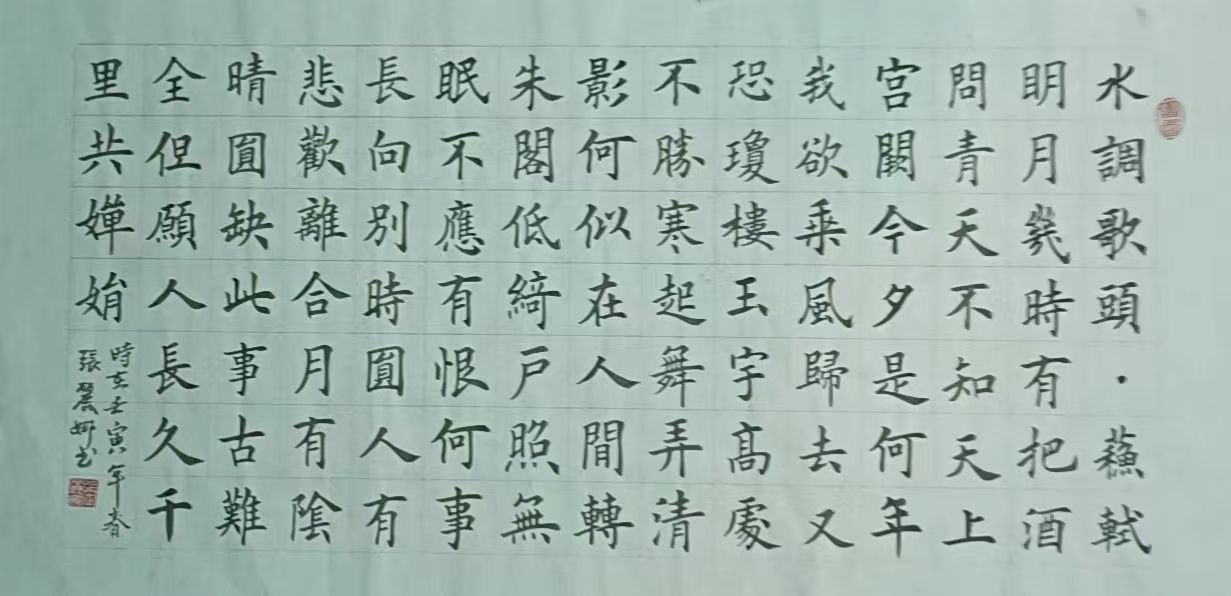 水調歌頭·蘇軾
明月幾時有把酒
問青天不知天上
宫闕今夕是何年
我欲乘風歸去又
恐瓊樓玉宇高處
不勝寒起舞弄清
影何似在人間轉
朱閣低綺戶照無
眠不應有恨何事
長向別時圓人有
悲歡離合月有陰
晴圓缺此事古難
全但願人長久千
里共嬋娟
時在壬寅年春
張麗娜书